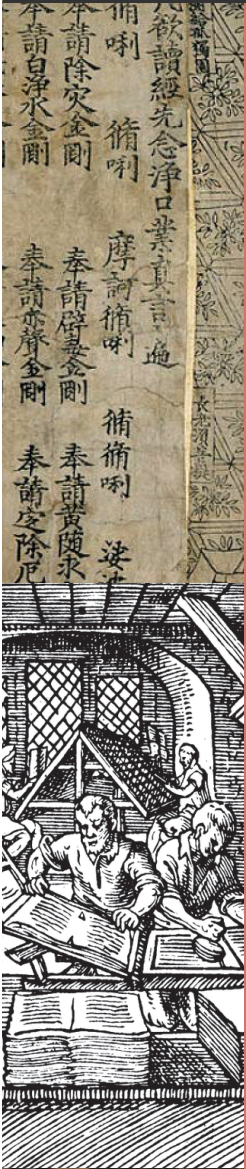 給孤獨園
長老須菩提
凡欲讀經先念淨口業真言一遍
脩唎 脩唎 摩訶脩唎 脩脩唎 娑
奉請除灾金剛 奉請辟毒金剛 奉請黃随求
奉請白淨水金剛 奉請赤聲金剛 奉請定除厄